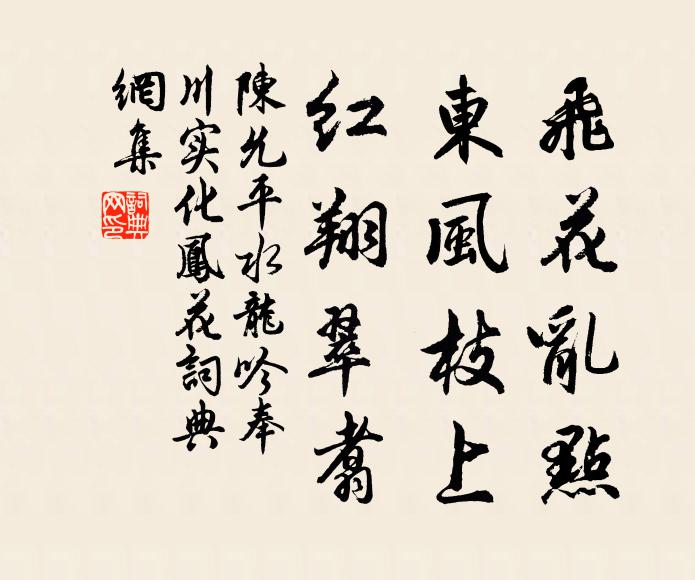 飛花亂點
東風枝上
紅翔翠翥
陳允平水龍吟奉
川实化鳳花詞典
網集
詞典網印